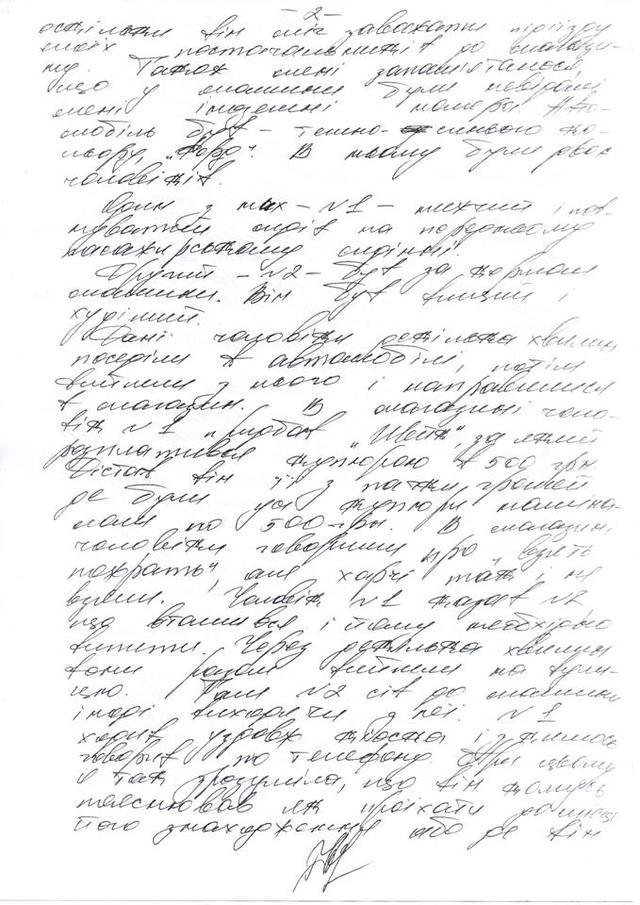 - 2 -
оскільки він міг заважати під'їзду
моїх постачальників до магази-
ну. Також мені запам'яталося,
що у машини були невідомі
мені іноземні номери. Авто-
мобіль був - темно-синього ко-
льору, "Форд". В ньому були двоє
чоловіків.
Один з них - №1 - нижчий і пов-
нуватий сидів на передньому
пасажирському сидінні.
Другий - №2 - був за кермом
машини. Він був вищий і
худіший.
Дані чоловіки декілька хвилин
посиділи в автомобілі, потім
вийшли з нього і направилися
в магазин. В магазині чоло-
вік №1 придбав за який
розплатився купюрою в 500 грн
Дістав він її з пачки грошей
де були усі купюри наміна-
лом по 500 грн. В магазині
чоловіки говорили про "взять
пожрать", але харчі так і не
взяли. Чоловік №1 казав №2
що втомився і йому необхідно
випити. Через декілька хвилин
вони разом вийшли на вули-
цю. Там №2 сів до машини
іноді виходячи з неї. №1
ходив уздовж кіоска і з кимось
говорив по телефону. При цьому
я так зрозуміла, що він комусь
пояснював як проїхати до місця
його знаходження або де він